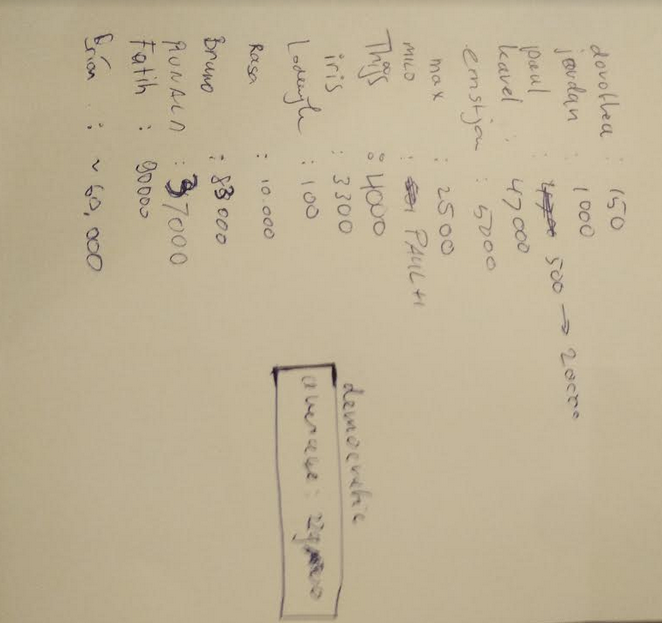 dorothea : 150
jordan : 1000
paul : 500 → 20000
karel : 47000
ernstjan : 5000
max : 2500
mico : PAUL +1
Thijs : 4000
iris : 3300
Lodewijk : 100
Rasa : 10.000
Bruno : 83000
RONALD : 37000
Fatih : 90000
Brian : ~ 60,000
democratic
average :